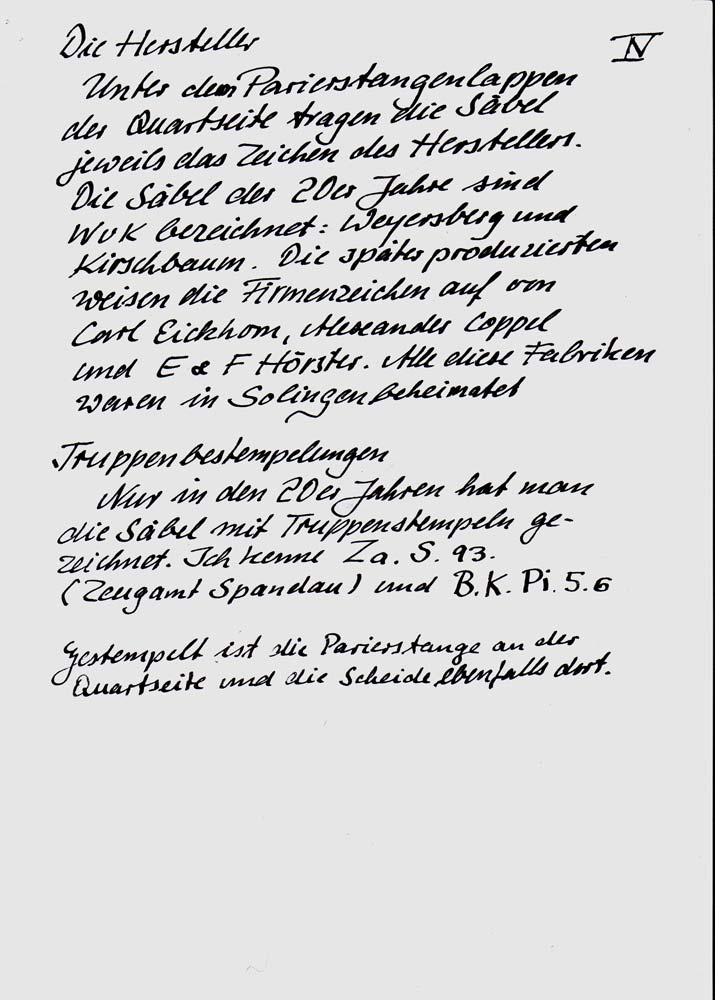 IV
Die Hersteller
Unter dem Parierstangenlappen
der Quartseite tragen die Säbel
jeweils das Zeichen des Herstellers.
Die Säbel der 20er Jahre sind
WuK bezeichnet: Weyersberg und
Kirschbaum. Die später produzierten
weisen die Firmenzeichen auf von
Carl Eickhorn, Alexander Coppel
und E & F Hörster. Alle diese Fabriken
waren in Solingen beheimatet
Truppenbestempelungen
Nur in den 20er Jahren hat man
die Säbel mit Truppenstempeln ge-
zeichnet. Ich kenne Za. S. 93.
(Zeugamt Spandau) und B.K. Pi. 5.6
Gestempelt ist die Parierstange an der
Quartseite und die Scheide ebenfalls dort.